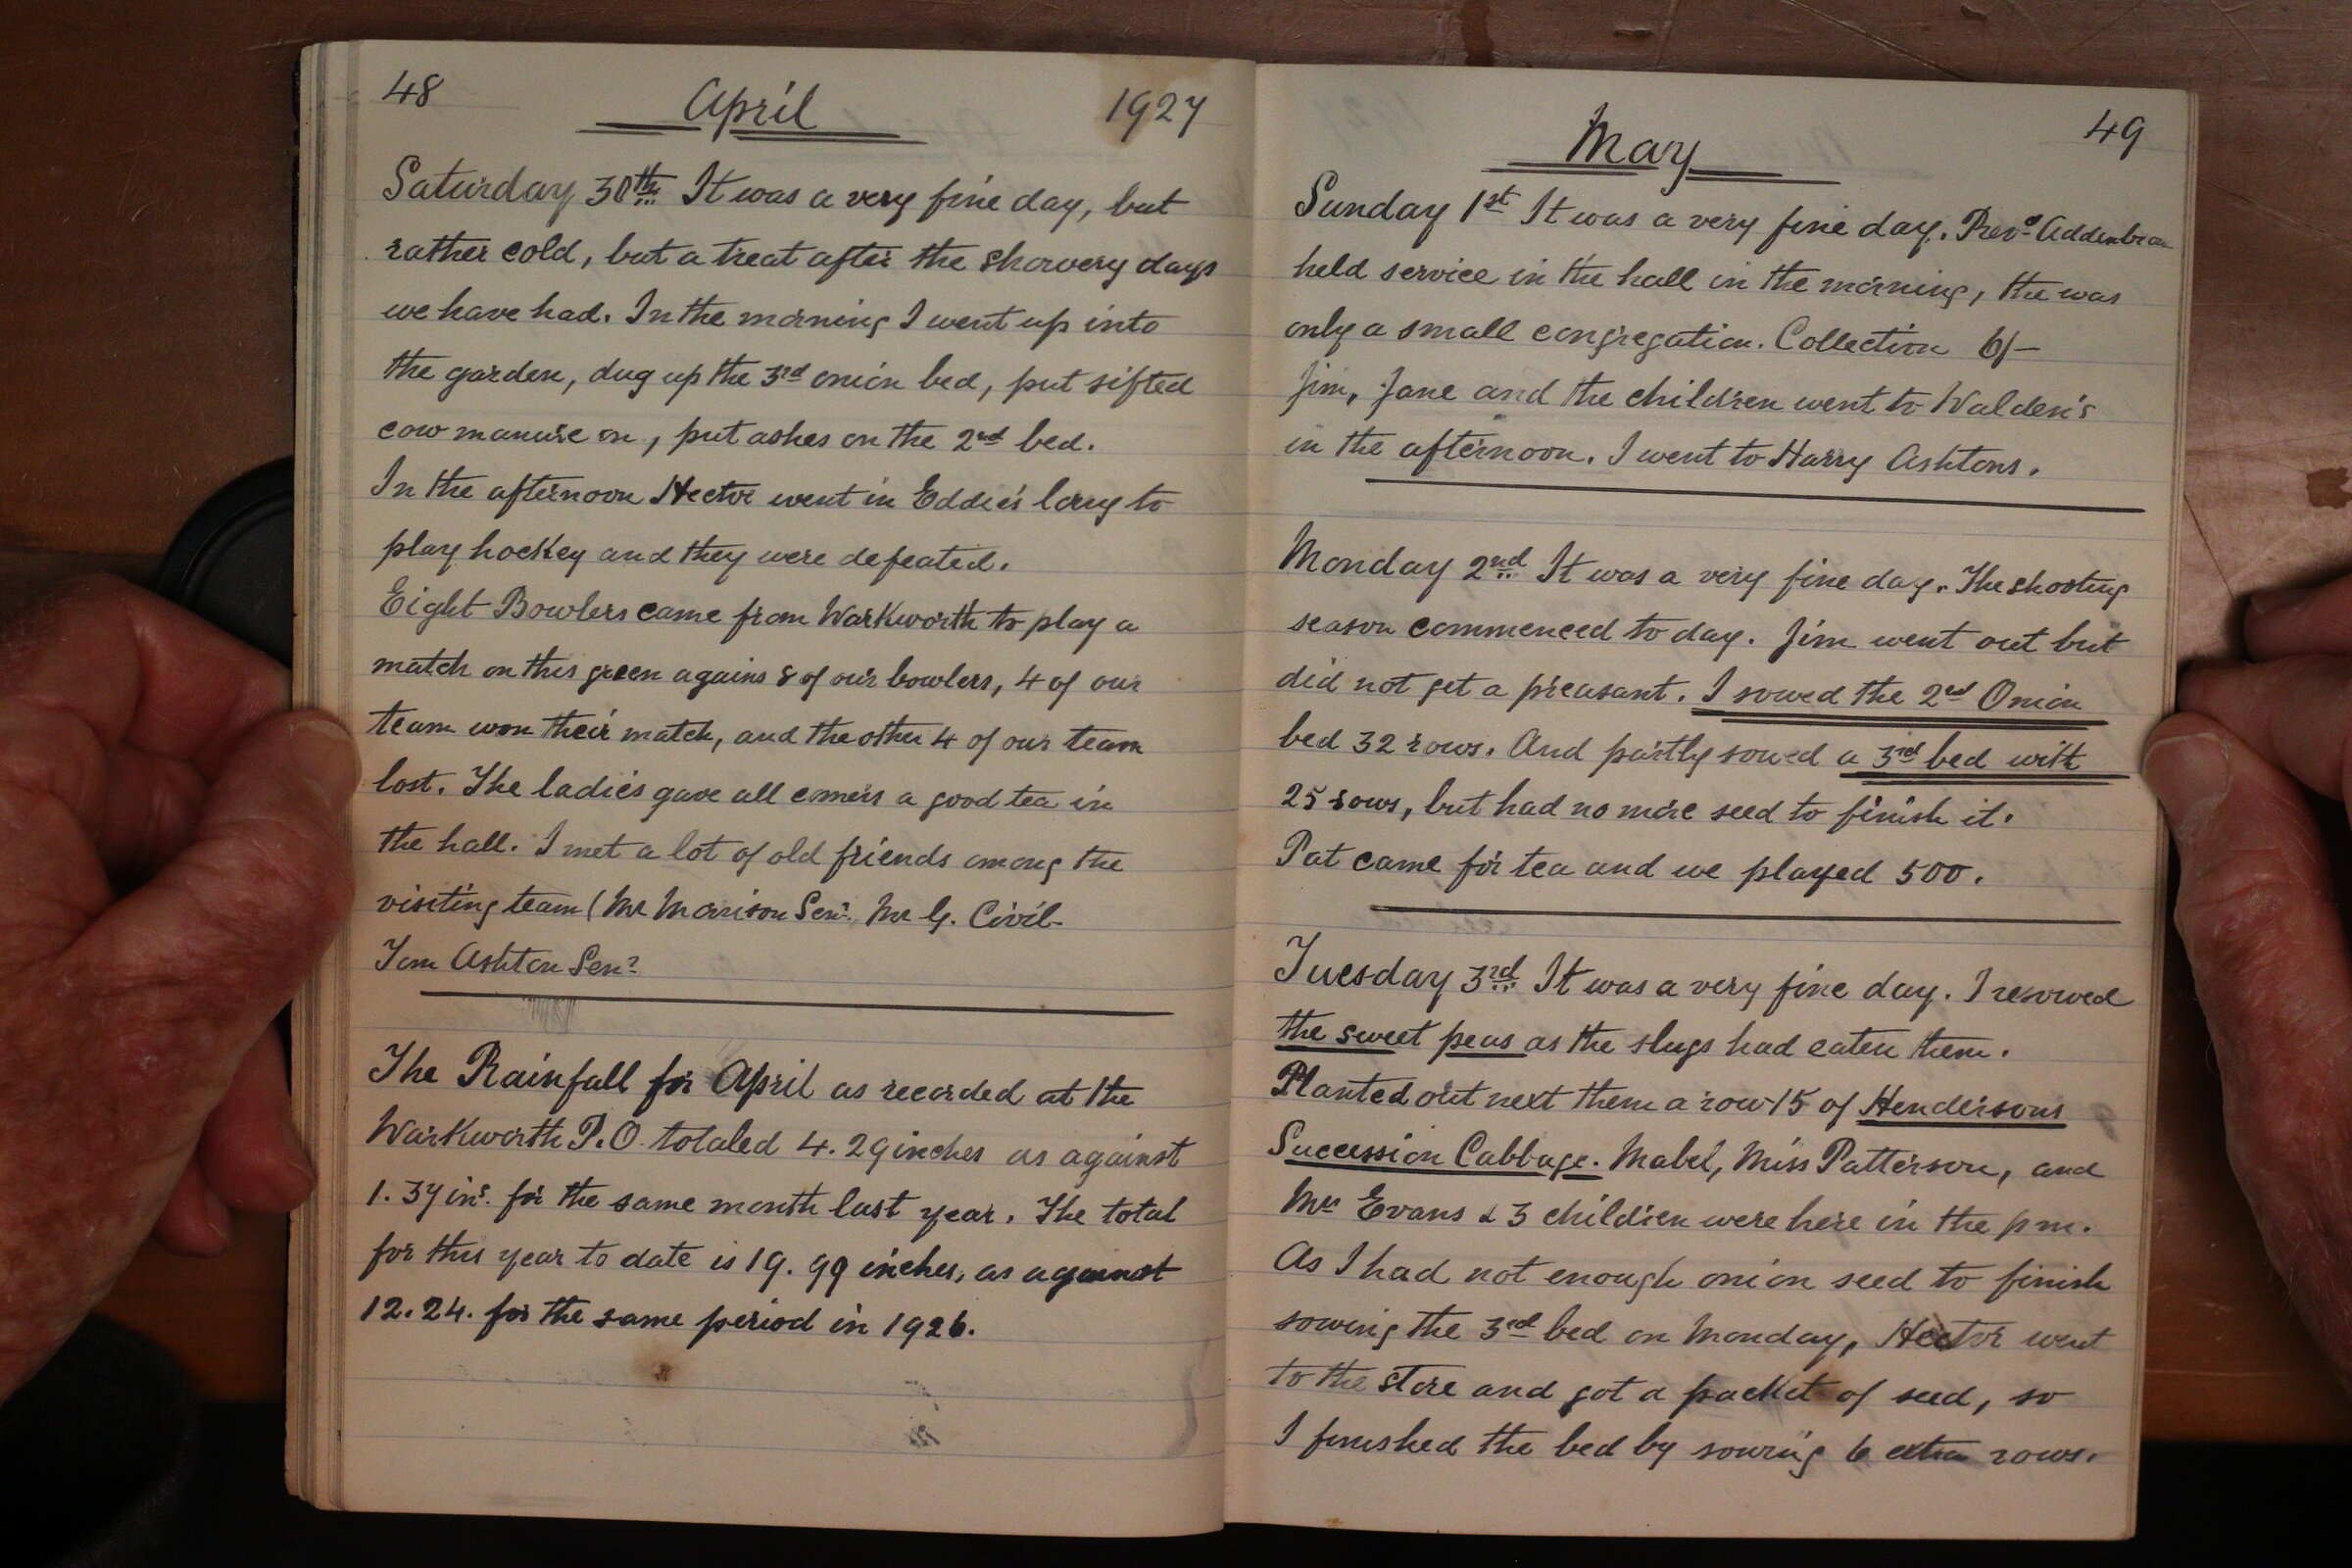 48 April 1927
Saturday 30th It was a very fine day, but
rather cold, but a treat after the showery days
we have had. In the morning I went up into
the garden, dug up the 3rd onion bed, put sifted
cow manure on, put ashes on the 2nd bed.
In the afternoon Hector went in Eddie's lorry to
play hockey and they were defeated.
Eight Bowlers came from Warkworth to play a
match on this green agains 8 of our bowlers, 4 of our
team won their match, and the other 4 of our team
lost. The ladies gave all comers a good tea in
the hall. I met a lot of old friends among the
visiting team (Mr Morison Senr. Mr G. Civil-
Tom Ashton Senr
The Rainfall for April as recorded at the
Warkworth P.O. totaled 4.29 inches as against
1.37 ins. for the same month last year. The total
for this year to date is 19.99 inches, as against
12.24. for the same period in 1926.
May 49
Sunday 1st It was a very fine day. Revd
held service in the hall in the morning, the was
only a small congregation. Collection 6/-
Jim, Jane and the children went to Walden's
in the afternoon. I went to Harry Ashtons.
Monday 2nd It was a very fine day. The shooting
season commenced to day. Jim went out but
did not get a pheasant. I sowed the 2nd Onion
bed 32 rows. And partly sowed a 3rd bed with
25 rows, but had no more seed to finish it.
Pat came for tea and we played 500.
Tuesday 3rd It was a very fine day. I resowed
the sweet peas as the slugs had eaten them.
Planted out next them a row-15 of Hendersons
Succession Cabbage. Mabel, Miss Patterson, and
Mrs Evans & 3 children were here in the pm.
As I had not enough onion seed to finish
sowing the 3rd bed on Monday, Hector went
to the store and got a packet of seed, so
I finished the bed by sowing 6 extra rows.